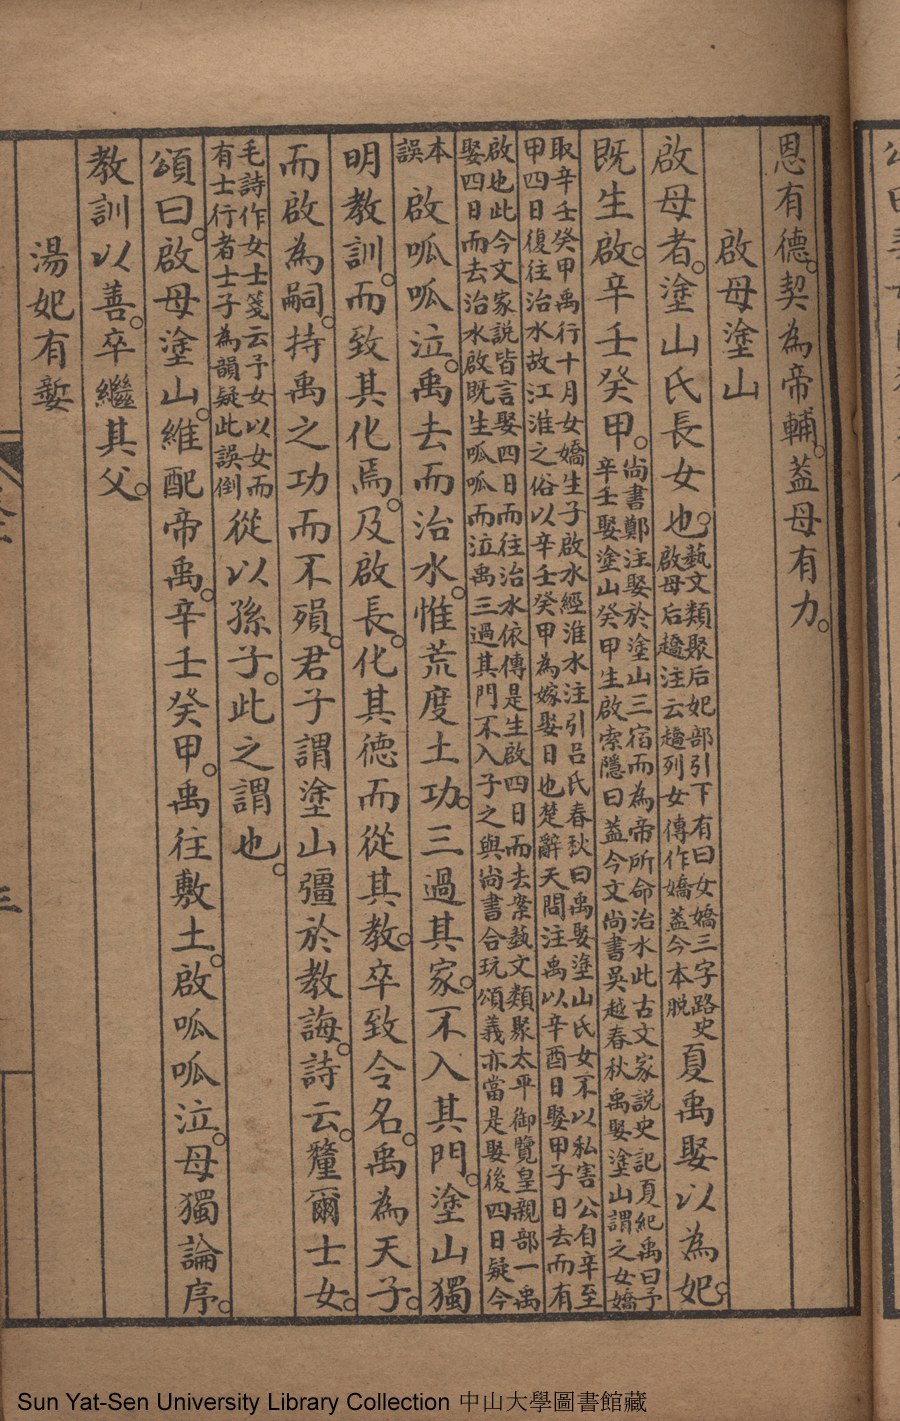 恩有德。契為帝輔。蓋母有力。
啟母塗山
啟母者。塗山氏長女也。藝文類聚后妃部引下有曰女嬌三字路史
啟母后趫注云趫列女傳作嬌蓋今本脫夏禹娶以為妃。
既生啟。辛壬癸甲。尚書鄭注娶於塗山三宿而為帝所命治水此古文家說史記夏紀禹曰予
辛壬娶塗山癸甲生啟索隱曰蓋今文尚書吳越春秋禹娶塗山謂之女嬌
取辛壬癸甲禹行十月女嬌生子啟水經淮水注引呂氏春秋曰禹娶塗山氏女不以私害公自辛至
甲四日復往治水故江淮之俗以辛壬癸甲為嫁娶日也楚辭天問注禹以辛酉日娶甲子日去而有
啟也此今文家說皆言娶四日而往治水依傳是生啟四日而去案藝文類聚太平御覽皇親部一禹
娶四日而去治水啟既生呱呱而泣禹三過其門不入子之與尚書合玩頌義亦當是娶後四日疑今
本
誤啟呱呱泣。禹去而治水。惟荒度土功。三過其家。不入其門。塗山獨
明教訓。而致其化焉。及啟長。化其德而從其教。卒致令名。禹為天子。
而啟為嗣。持禹之功而不殞。君子謂塗山彊於教誨。詩云。釐爾士女。
毛詩作女士箋云予女以女而
有士行者士子為韻疑此誤倒從以孫子。此之謂也。
頌曰。啟母塗山。維配帝禹。辛壬癸甲。禹往敷土。啟呱呱泣。母獨論序。
教訓以善。卒繼其父。
湯妃有㜪
三